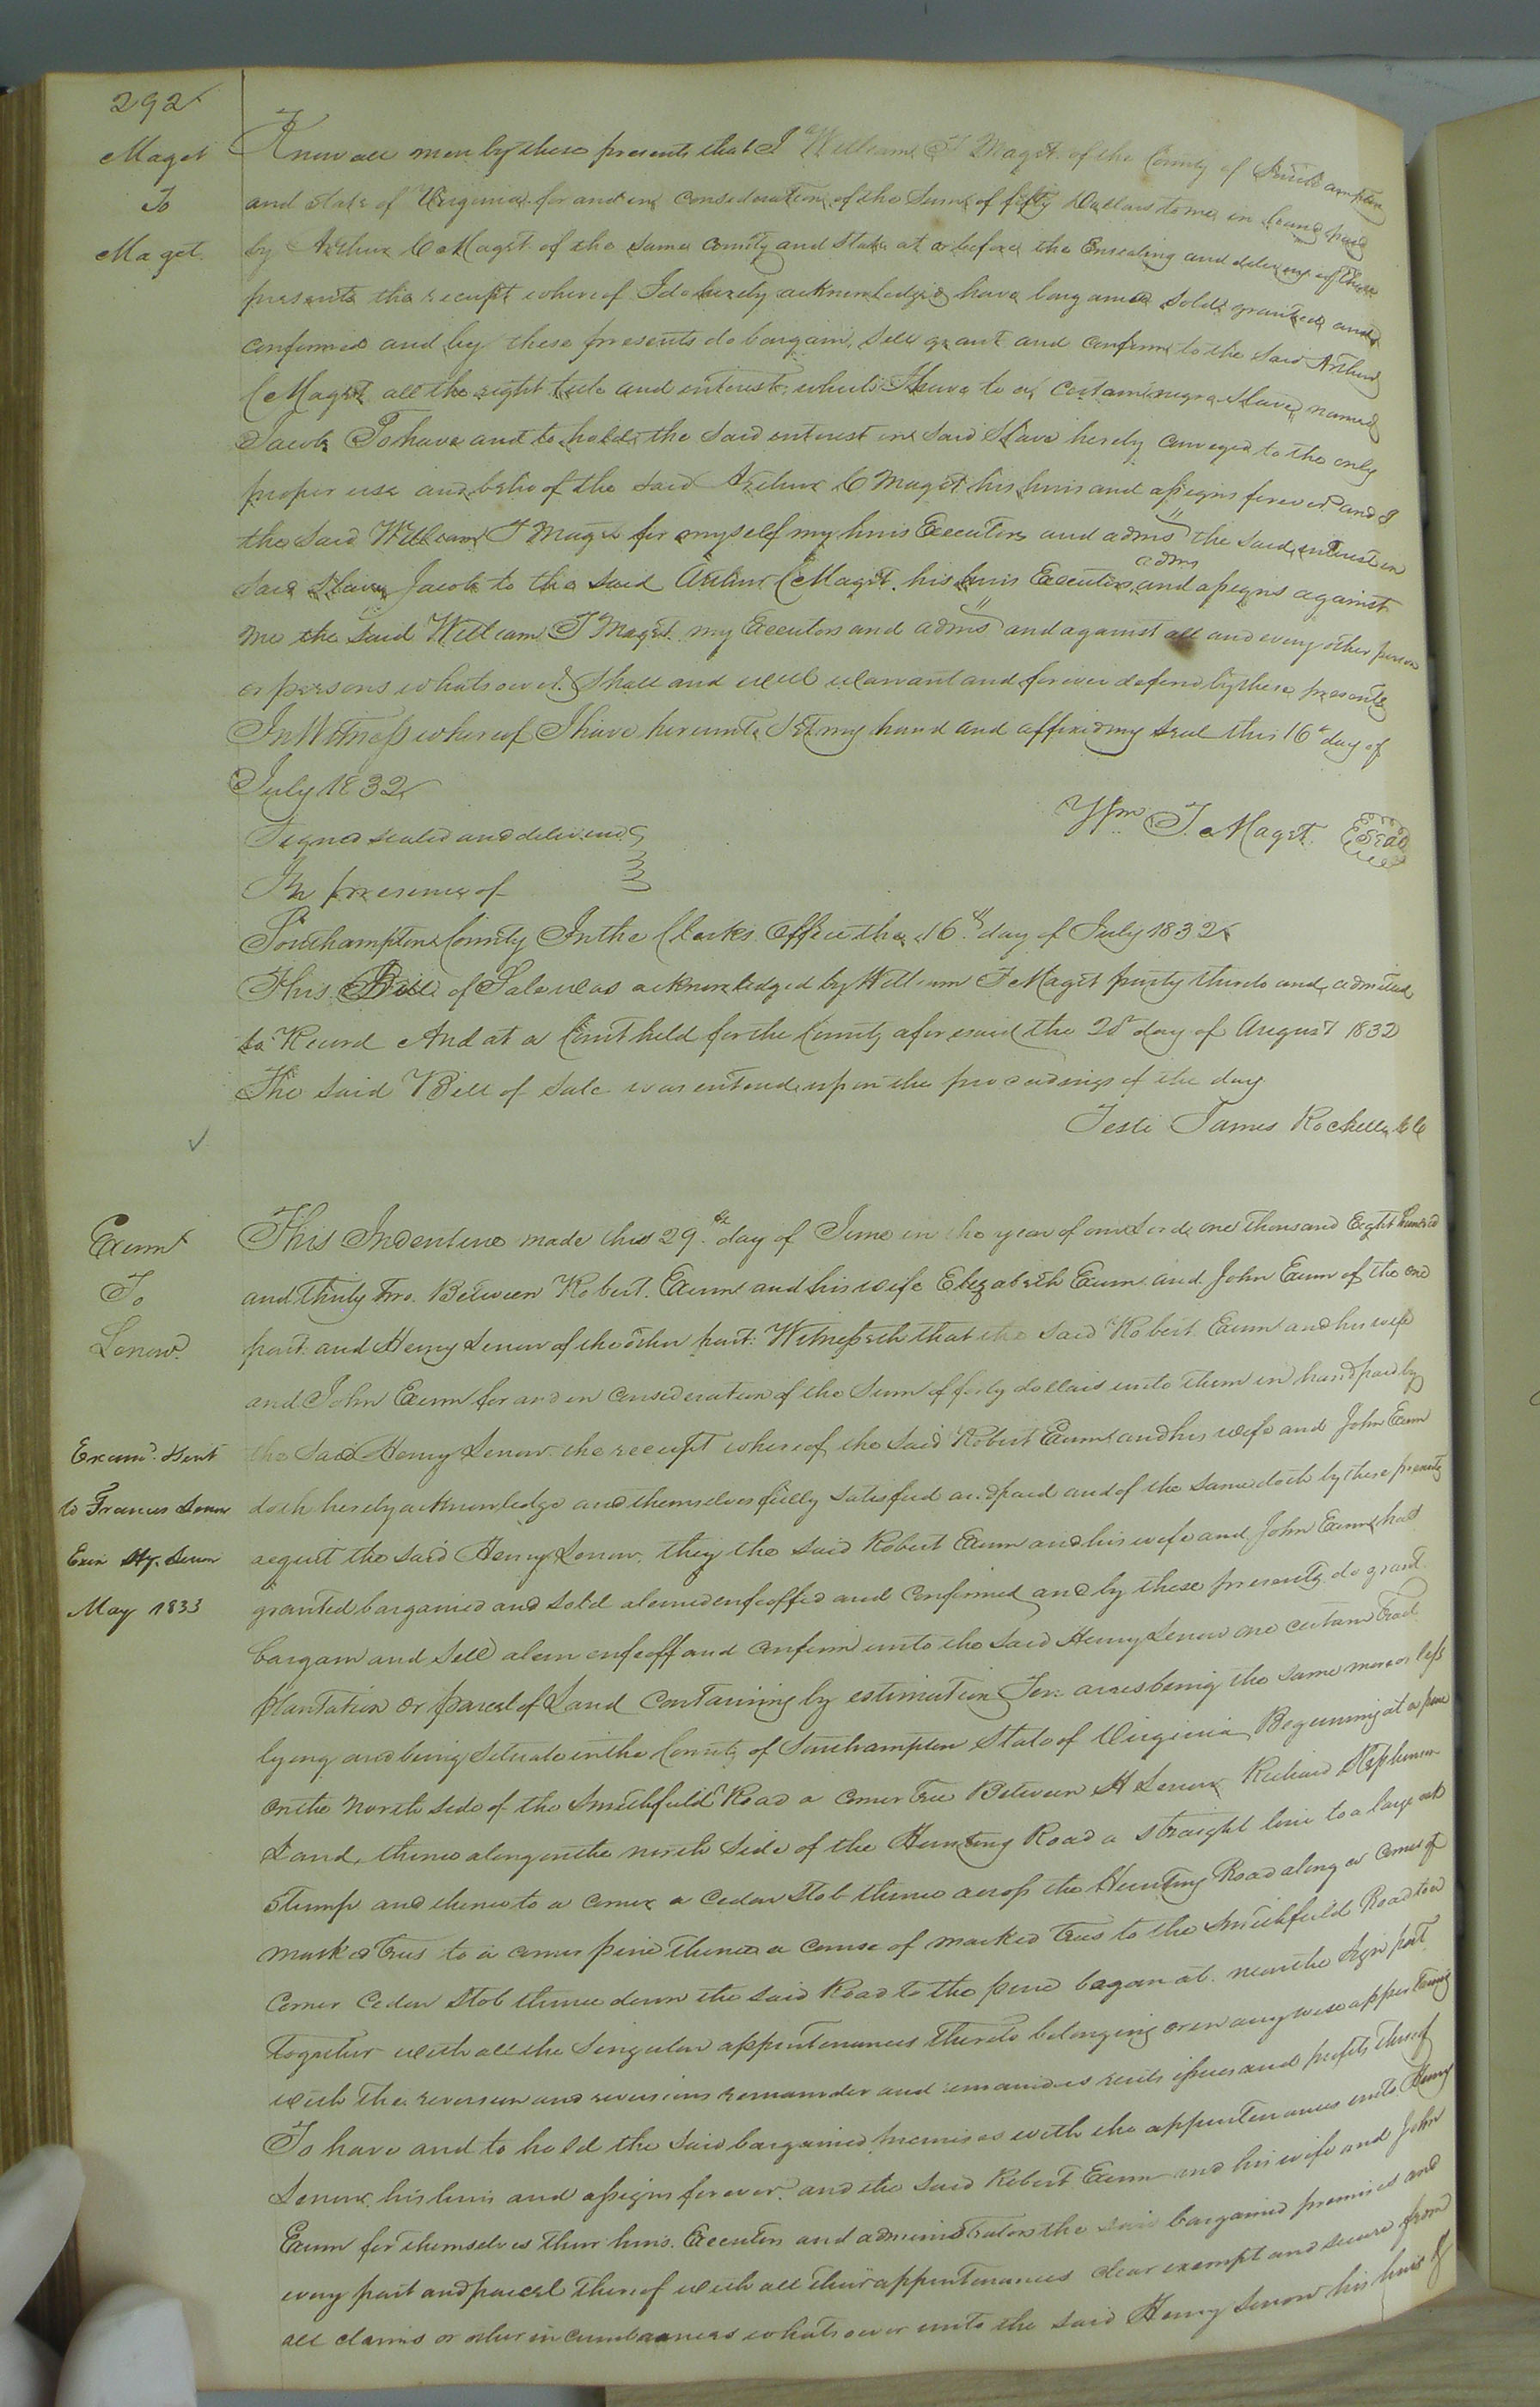 292
Maget
To
Maget.
Know all men by these presents that I William T Maget of the County of Southampton
and state of Virginia for and in consideration of the Sum of fifty Dollars to me in hand paid
by Arthur C Maget of the same County and State at or before the Ensealing and delivery of these
presents the receipt whereof I do hereby acknowledge have bargained sold granted and
confirmed and by these presents do bargain, sell grant and confirm to the said Arthur
C Maget all the right title and interest which I have to a certain negro Slave named
Jacob To have and to hold the said interest in said Slave hereby conveyed to the only
proper use and behof of the said Arthur C Maget his heirs and assigns forever and I
the said William T Maget for myself my heirs Executors and adms the said interest in
said Slave Jacob to the said Arthur C Maget his heirs Executors adms and assigns against
me the said William T Maget my Executors and adms and against all and every other person
or persons whatsoever shall and will warrant and forever defend by these presents
In Witness whereof I have hereunto Set my hand and affixed my seal this 16th day of
July 1832
Wm T. Maget Seal
Signed sealed and delivered
In presence of
Southampton County In the Clerks Office the 16th day of July 1832
This Bill of Sale was acknowledged by William T Maget party thereto and admitted
to Record And at a Court held for the County aforesaid the 20th day of August 1832
The said Bill of Sale was entered upon the proceedings of the day
Teste James Rochelle CC
Exum
To
Lenow.
Examd. & sent
to Frances Lenow
Exix Hy. Lenow
May 1833
This Indenture made this 29th day of June in the year of our Lord one thousand Eight hundred
and thirty two. Between Robert Exum and his wife Elizabeth Exum and John Exum of the one
part and Henry Lenow of the other part: Witnesseth that the said Robert Exum and his wife
and John Exum for and in consideration of the Sum of forty dollars unto them in hand paid by
the said Henry Lenow the receipt whereof the said Robert Exum and his wife and John Exum
doth hereby acknowledge and themselves fully satisfied and paid and of the same doth by these presents
acquit the said Henry Lenow, they the said Robert Exum and his wife and John Exum hath
granted bargained and sold aliened enfeoffed and confirmed and by these presents do grant
bargain and sell alien enfeoff and confirm unto the said Henry Lenow one certain Tract
plantation or parcel of Land Containing by estimation Ten acres being the same more or less
lying and being Situate in the County of Southampton State of Virginia Beginning at a pine
on the North side of the Smithfield Road a corner tree Between H Lenow Richard Stephenson
Land, thence along on the north side of the Hunting Road a straight line to a large oak
Stump and thence to a corner a cedar Stob thence across the Hunting Road along a corner of
marked trees to a corner pine thence a course of marked trees to the Smithfield Road to a
corner Cedar Stob thence down the said Road to the pine began at. near the Sign post
together with all the singular appurtenances thereto belonging or in any wise appertaining
with the reversion and reversions remainder and remainders rents issues and profits thereof
To have and to hold the said bargained premises with the appurtenances unto Henry
Lenow his heirs and assigns forever. and the said Robert Exum and his wife and John
Exum for themselves their heirs. Executors and administrators the said bargained premises and
every part and parcel thereof with all their appurtenances clear exempt and secure from
all claims or other incumbrances whatsoever unto the said Henry Lenow his heirs &